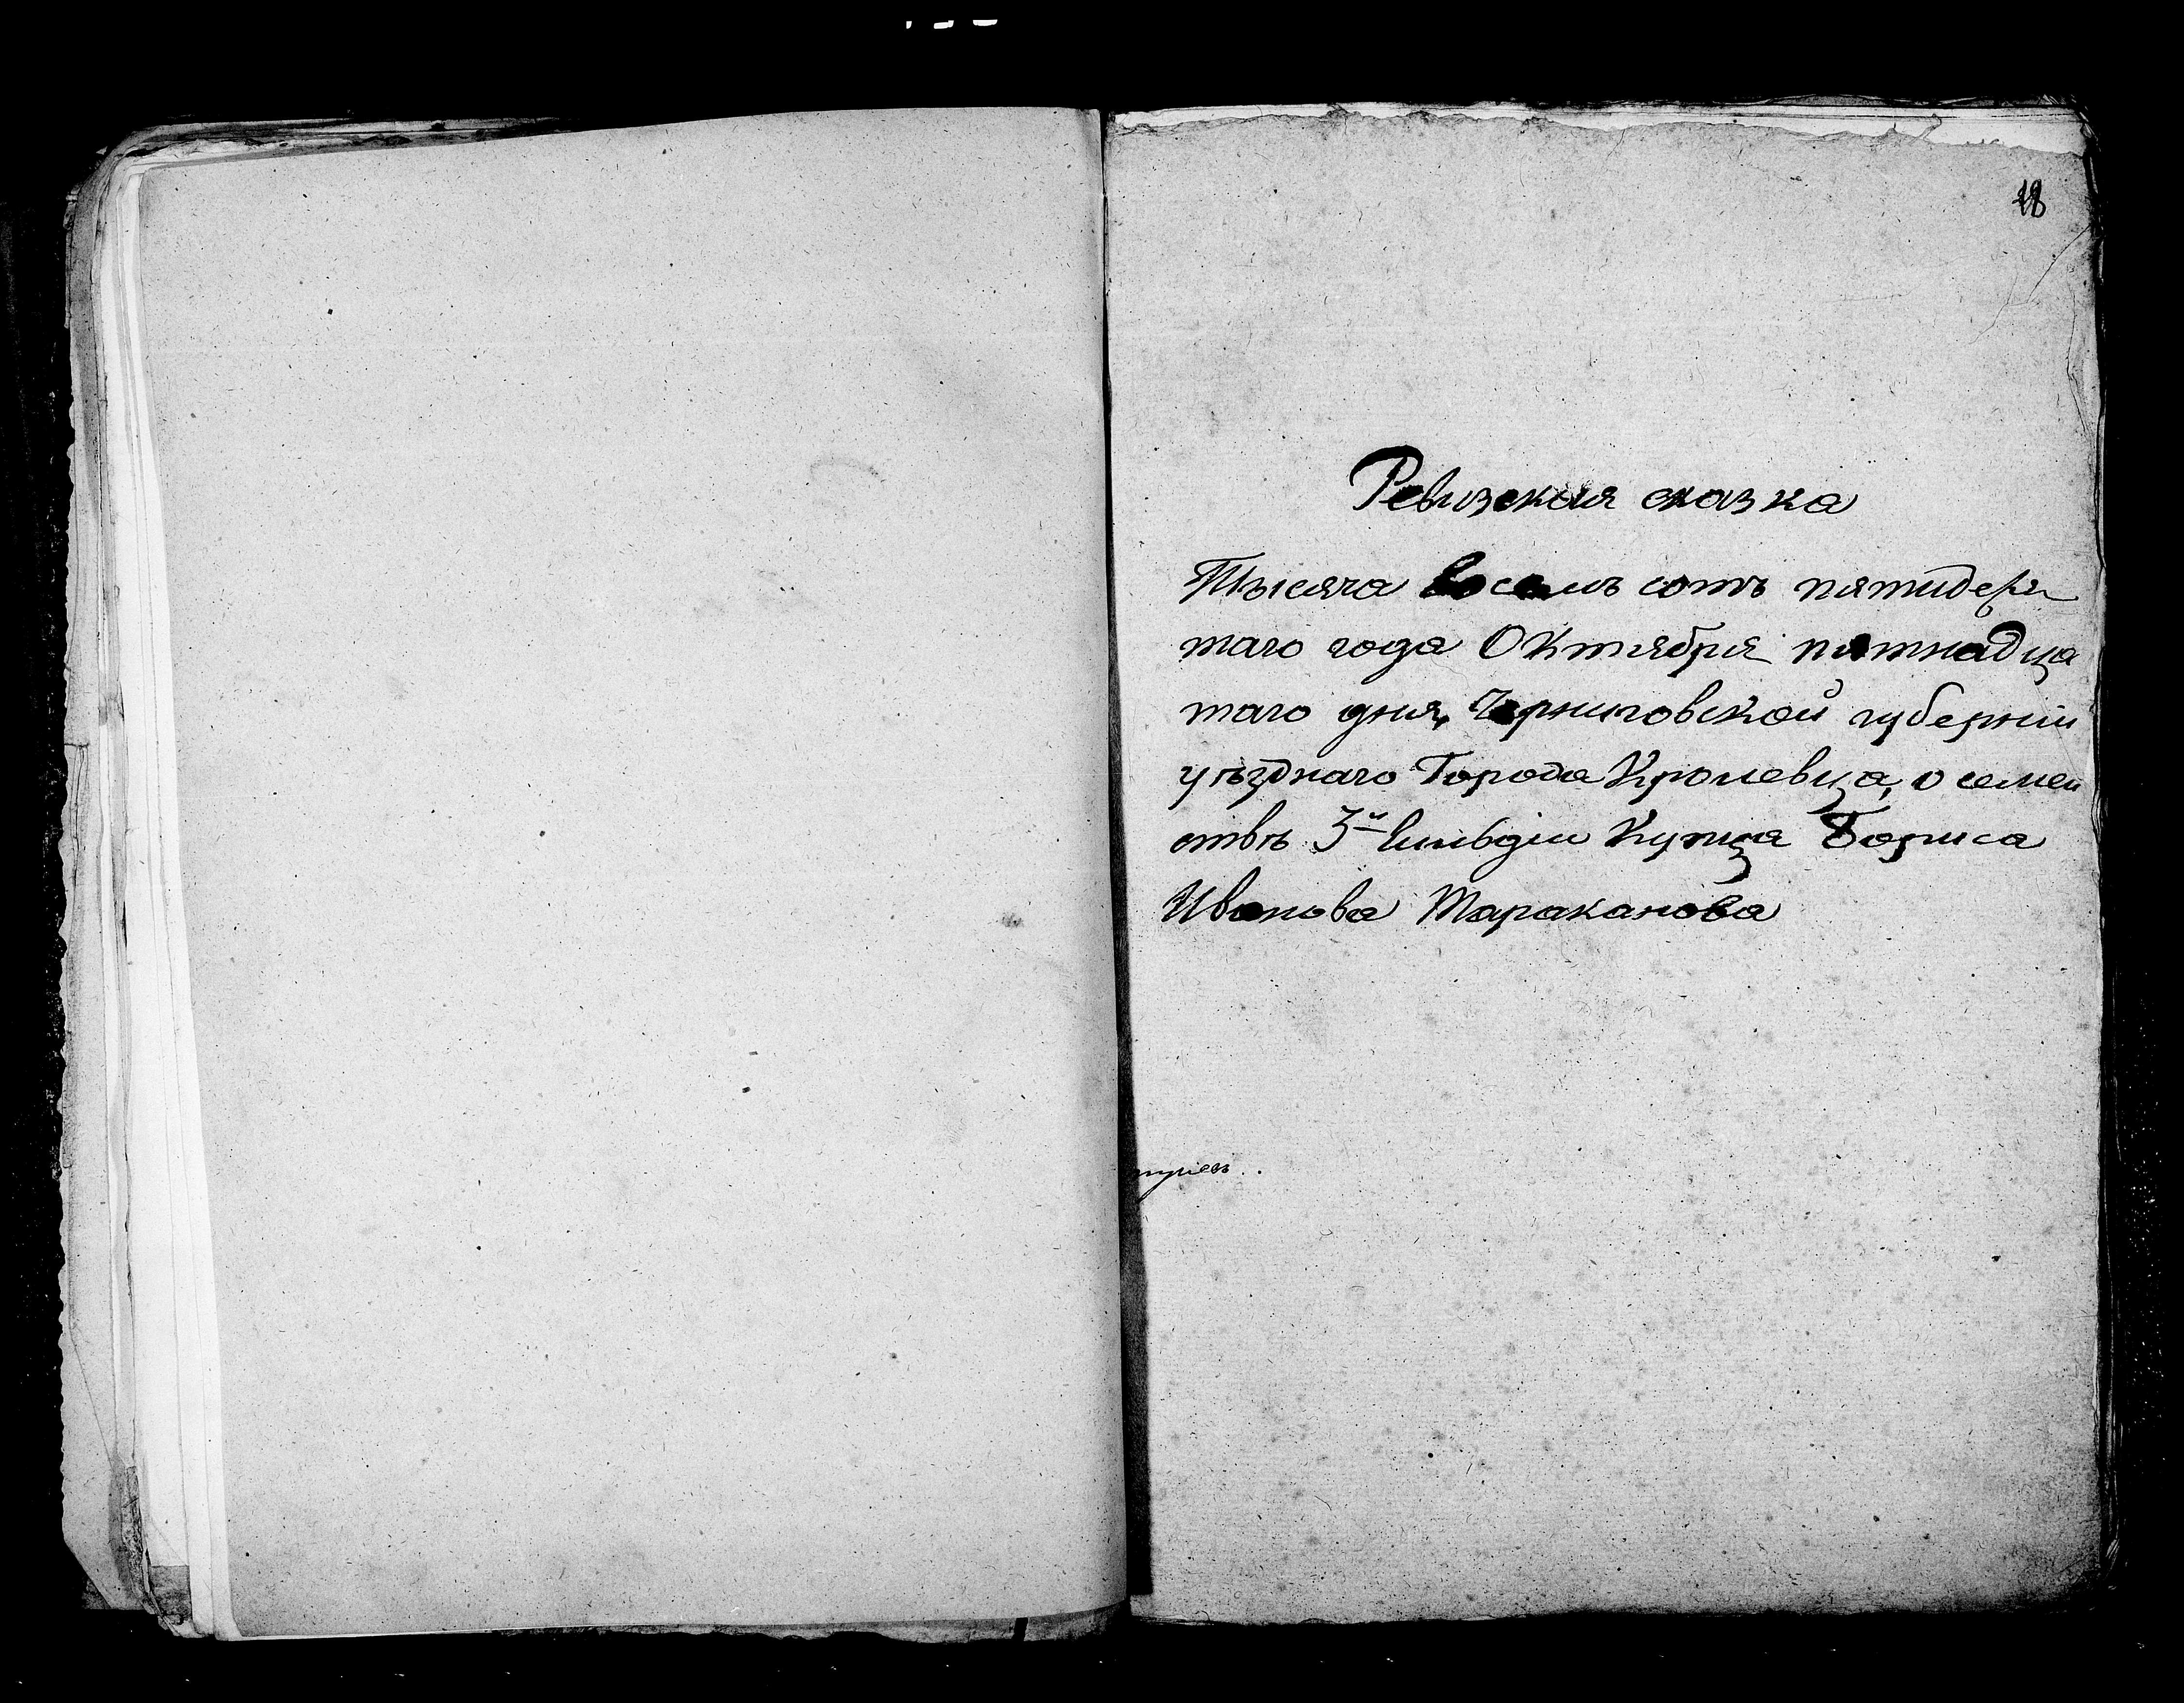 Ревизская сказка
Тысяча восемъ сотъ пятидеся
таго года Октября пятнадца
таго дня, Черниговской губерніи
уѣзднаго Города Кролевца, о семей
ствѣ 3й Гильдіи Купца Бориса
Иванова Тараканова